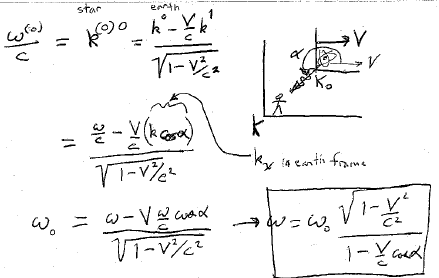 star earth
ω^(0)/c = k^(0)0 = (k^0 - V/c k^1)/√(1-V²/c²)
V
α
V
K₀
K
= (ω/c - V/c (k cosα))/√(1-V²/c²)
k_x in earth frame
ω₀ = (ω - V ω/c cosα)/√(1-V²/c²) → ω = ω₀ √(1-V²/c²)/(1-V/c cosα)